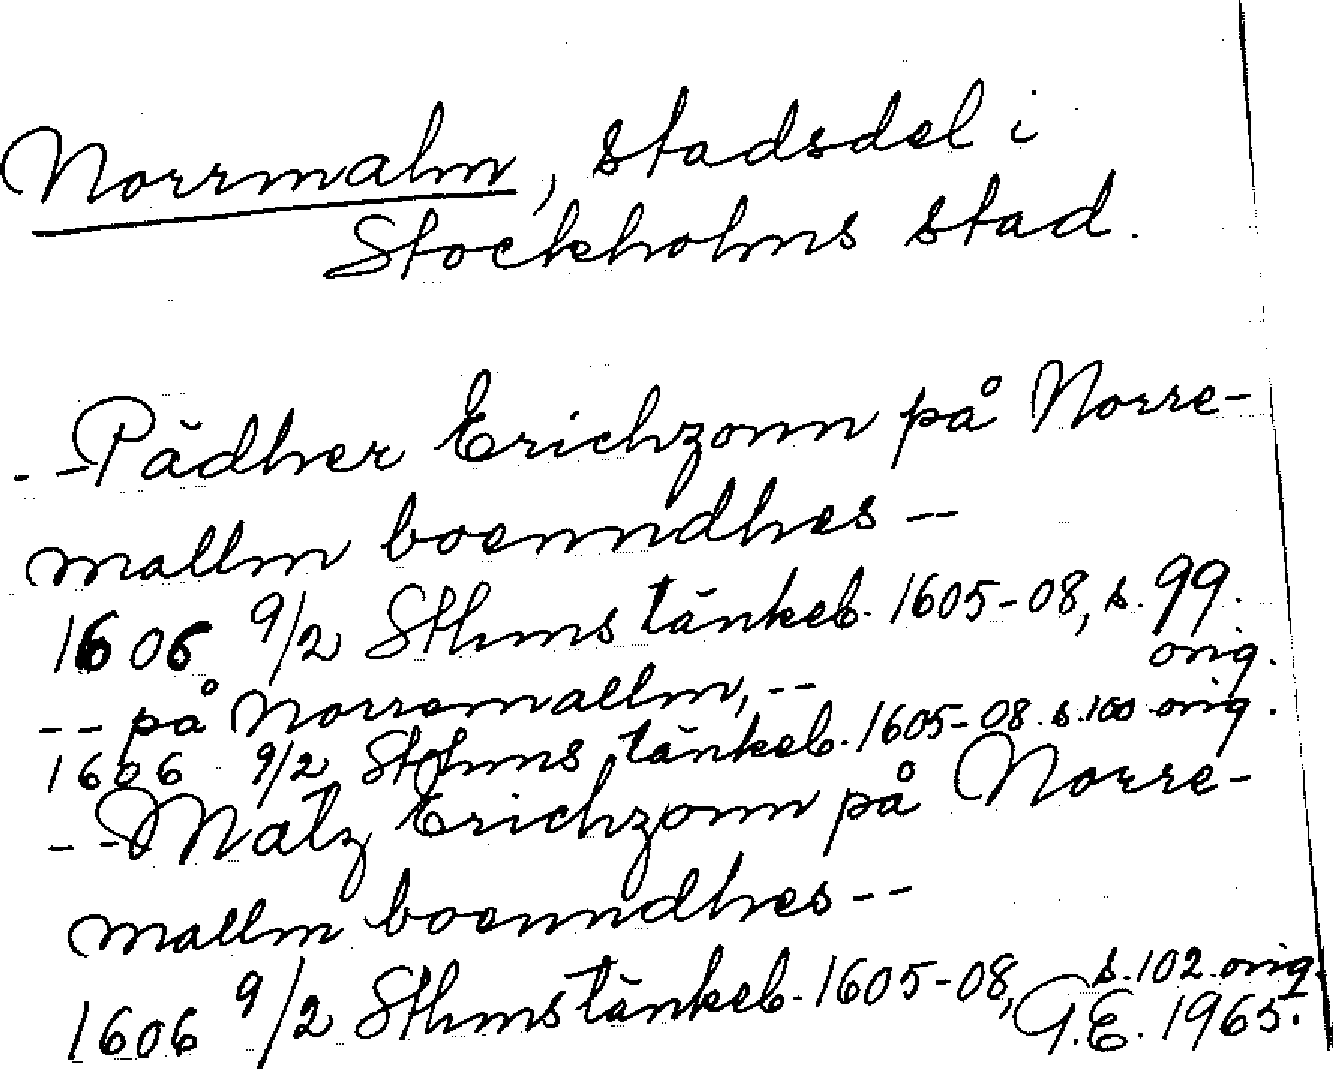 Norrmalm, stadsdel i
Stockholms stad.
- - Pädher Erichzonn på Norre-
mallm boenndhes --
1606 9/2 Sthms tänkeb. 1605-08, s. 99.
orig.
-- på Norremallm, --
1606 9/2 Sthms tänkeb. 1605-08. s. 100 orig.
-- Matz Erichzonn på Norre-
mallm boenndhes --
1606 9/2 Sthms tänkeb. 1605-08, s. 102. orig.
G.E. 1965.